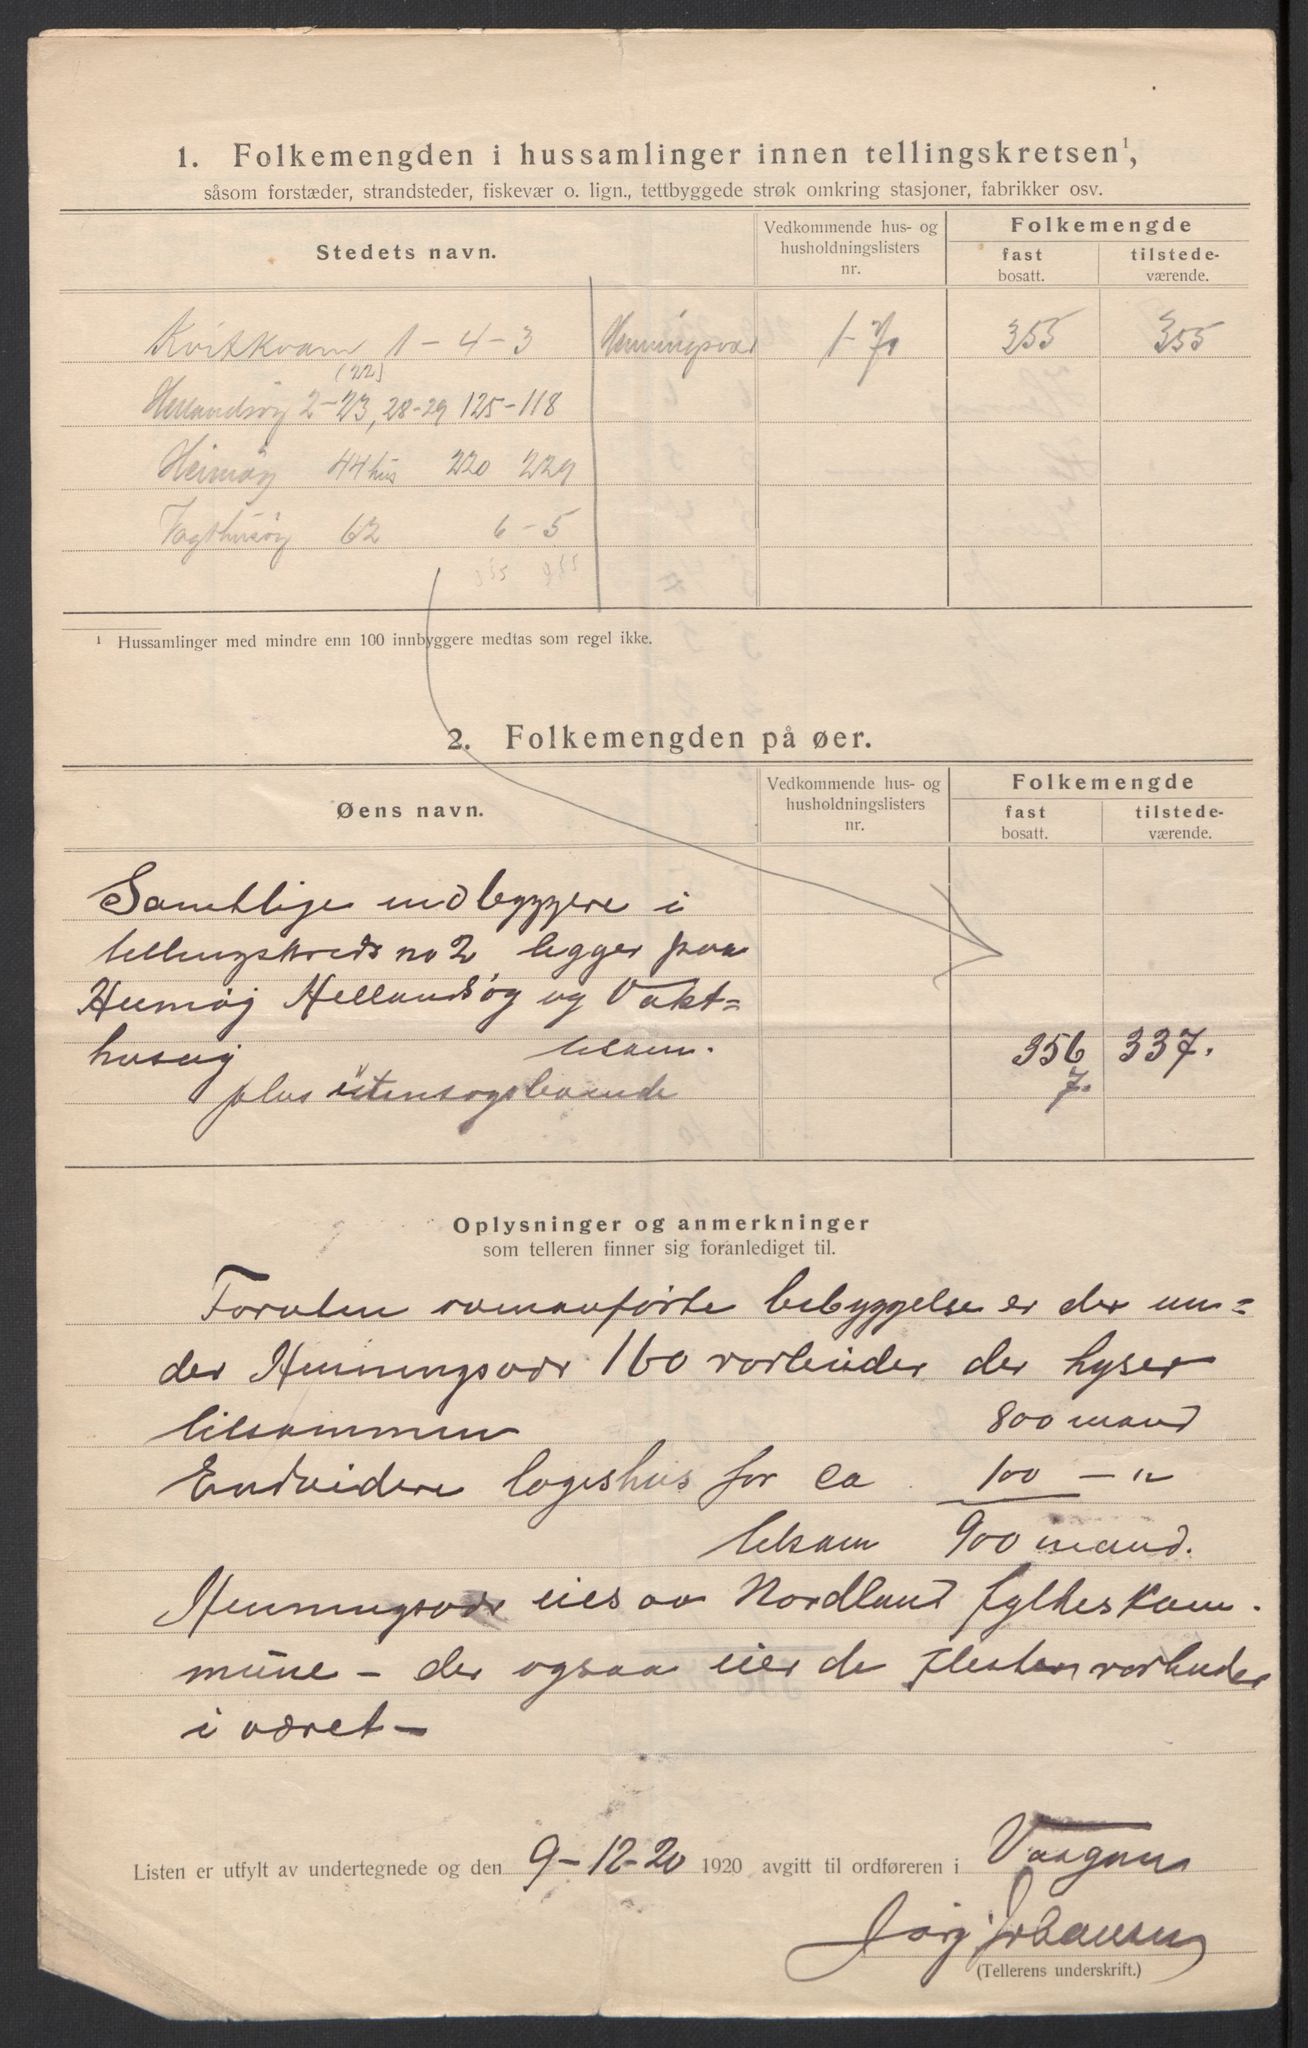 1. Folkemengden i hussamlinger innen tellingskretsen¹,
såsom forstæder, strandsteder, fiskevær o. lign., tettbyggede strøk omkring stasjoner, fabrikker osv.
Stedets navn.
Vedkommende hus- og
husholdningslisters
nr.
Folkemengde
fast
bosatt.
tilstede-
værende.
Kvitkvam 1 - 4 - 3 Henningsvær 1-70 355 355
(22)
Hellandsøy 2-23, 28-29 125-118
Heimøy 44 hus 220 229
62 6-5
355 355
¹ Hussamlinger med mindre enn 100 innbyggere medtas som regel ikke.
2. Folkemengden på øer.
Øens navn.
Vedkommende hus- og
husholdningslisters
nr.
Folkemengde
fast
bosatt.
tilstede-
værende.
Samtlige indbyggere i
tellingskreds no 2 ligger paa
Heimøy Hellandsøy og Vakt=
husøy tilsam. 356 337.
plus utensogsboende 7.
Oplysninger og anmerkninger
som telleren finner sig foranlediget til.
Foruten ovenanførte bebyggelse er der un=
der Henningsvær 160 rorbuder der hyser
tilsammen 800 mand
Endvidere logishus for ca 100 - "
tilsam 900 mand.
Henningsvær eies av Nordland fylkeskom-
mune - der ogsaa eier de flesten rorbuder
i været -
Listen er utfylt av undertegnede og den 9-12-20 1920 avgitt til ordføreren i Vaagan
Jørg Johansen
(Tellerens underskrift.)